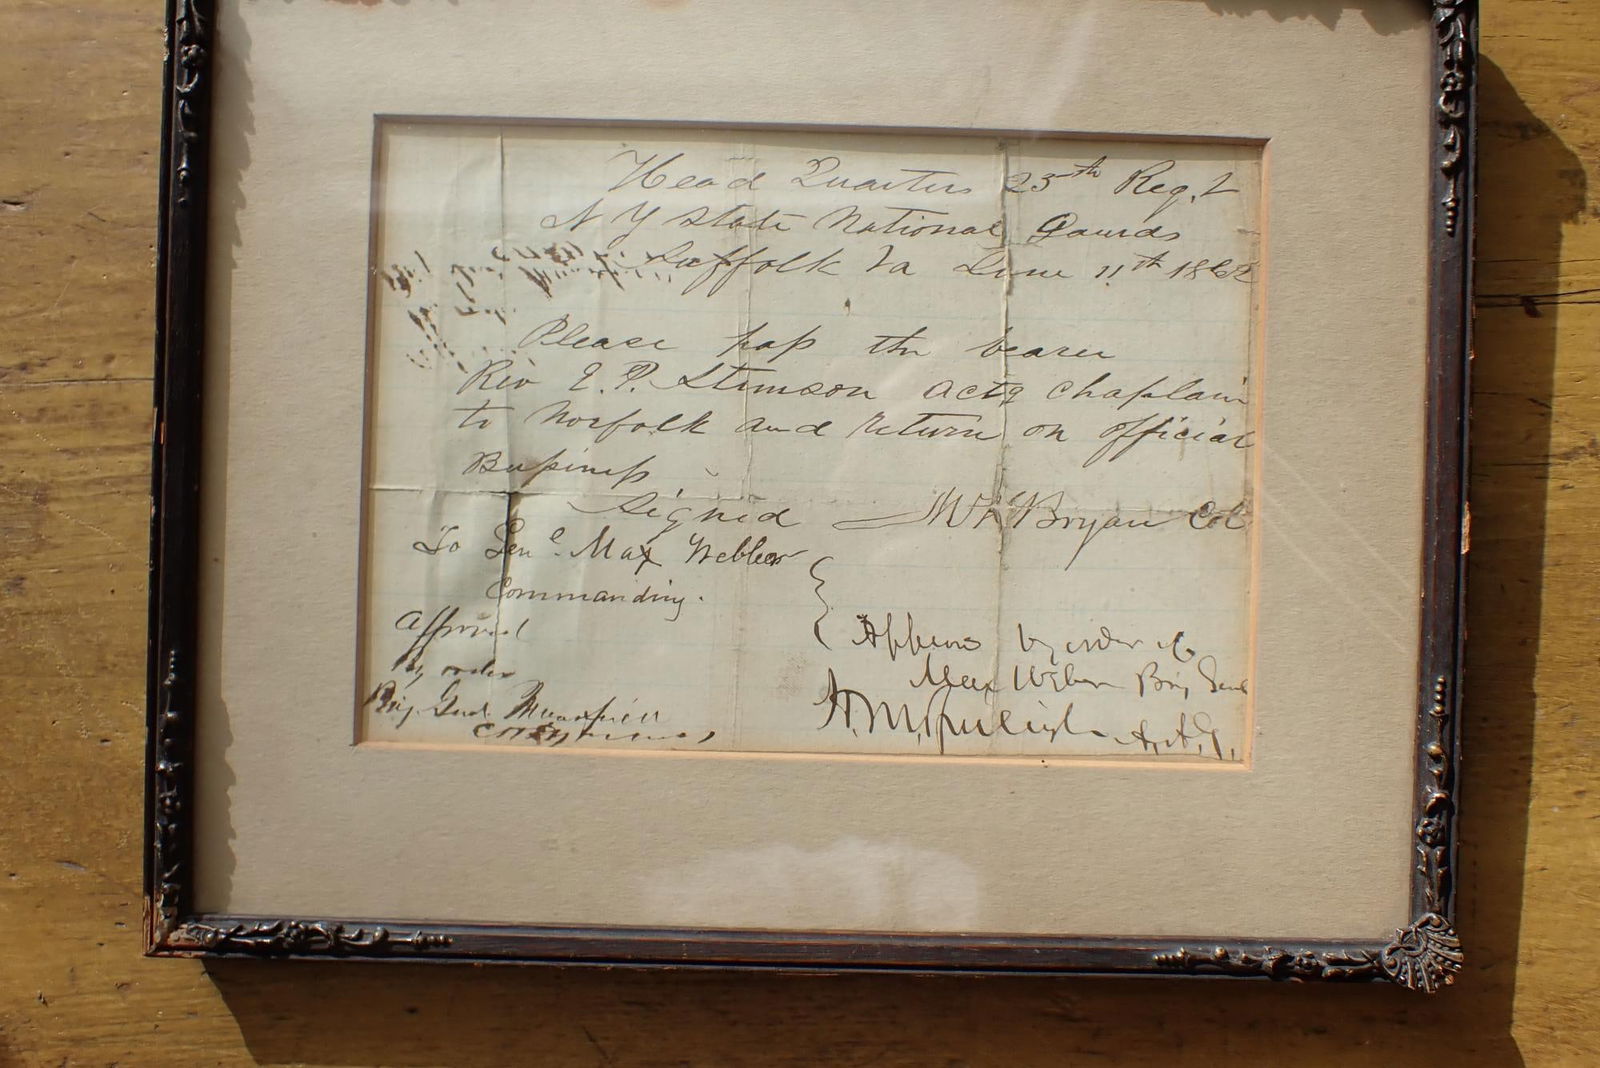 Head Quarters 25th Regt
N Y State National Gaurds
Suffolk Va June 11th 1862
Please pass the bearer
Rev E. P. Stimson actg chaplain
to Norfolk and return on official
Business
Signed Bryan Col
To Genl. Max Webber
Commanding.
Approved
by order
Brig. Genl. Mansfield
by order of
Max Weber Brig Genl
A.A.G.